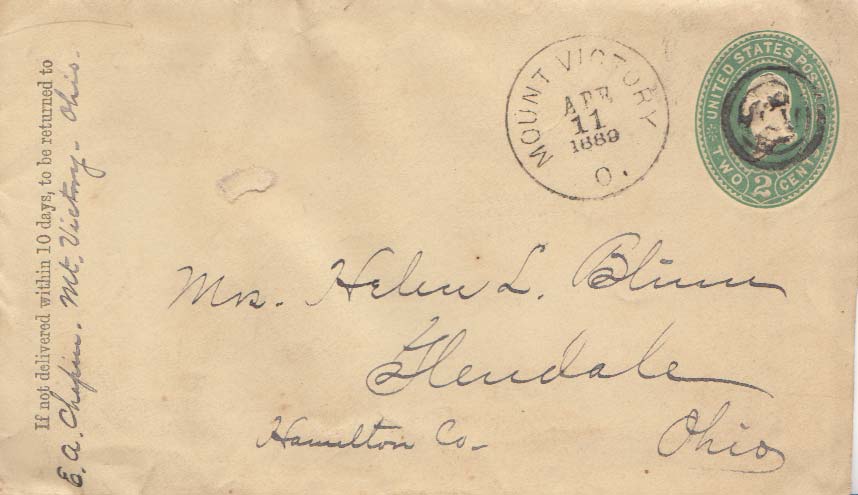 If not delivered within 10 days, to be returned to
E. A. Chapin. Mt. Victory - Ohio.
MOUNT VICTORY
APR
11
1889
O.
UNITED STATES POSTAGE
TWO 2 CENTS
Mrs. Helen L. Blinn
Glendale
Hamilton Co-
Ohio